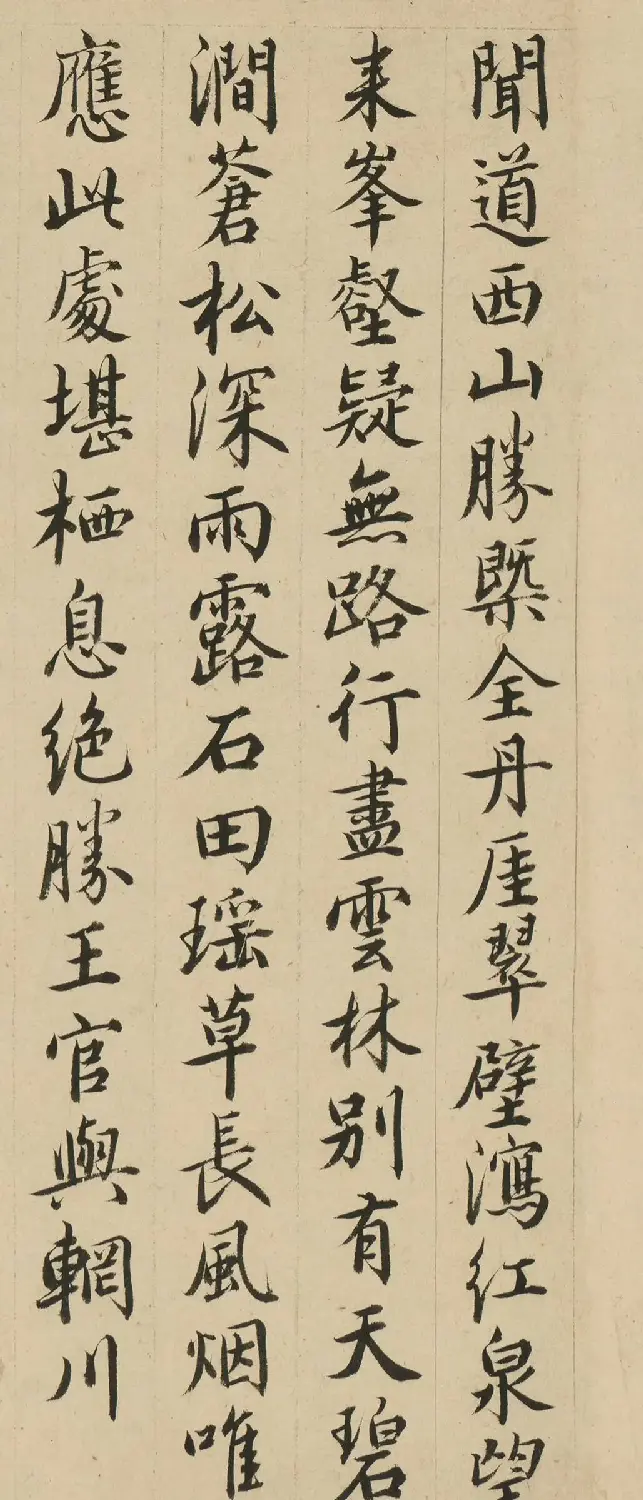 聞道西山勝槩全丹厓翠壁瀉紅泉望
来峯壑疑無路行盡雲林別有天碧
澗蒼松深雨露石田瑶草長風烟唯
應此處堪栖息絶勝王官與輞川